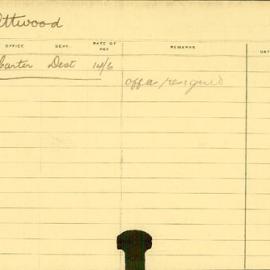 Attwood
OFFICE DEPT. RATE OF PAY REMARKS DAT
Carter Dest 14/6
off a/ resigned